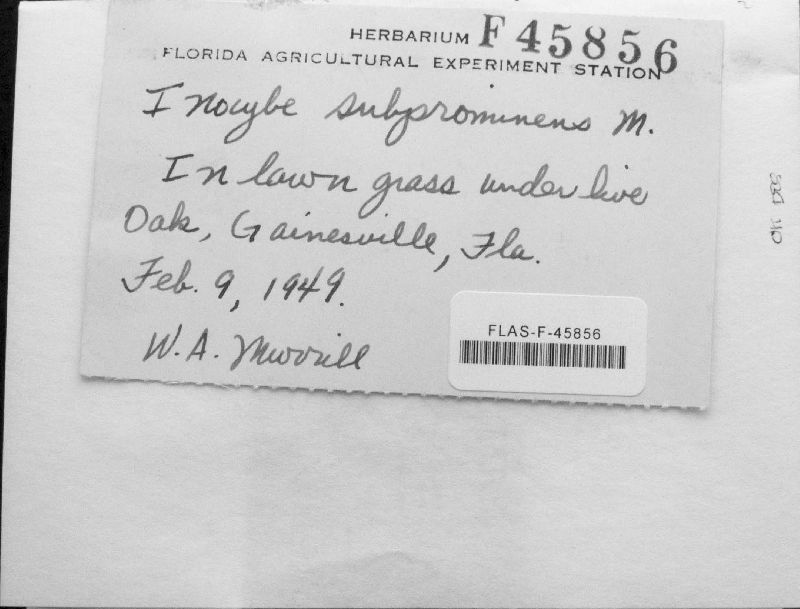 HERBARIUM F45856
FLORIDA AGRICULTURAL EXPERIMENT STATION
Inocybe subprominens M.
In lawn grass under live
Oak, Gainesville, Fla.
Feb. 9, 1949.
W. A. Murrill
FLAS-F-45856